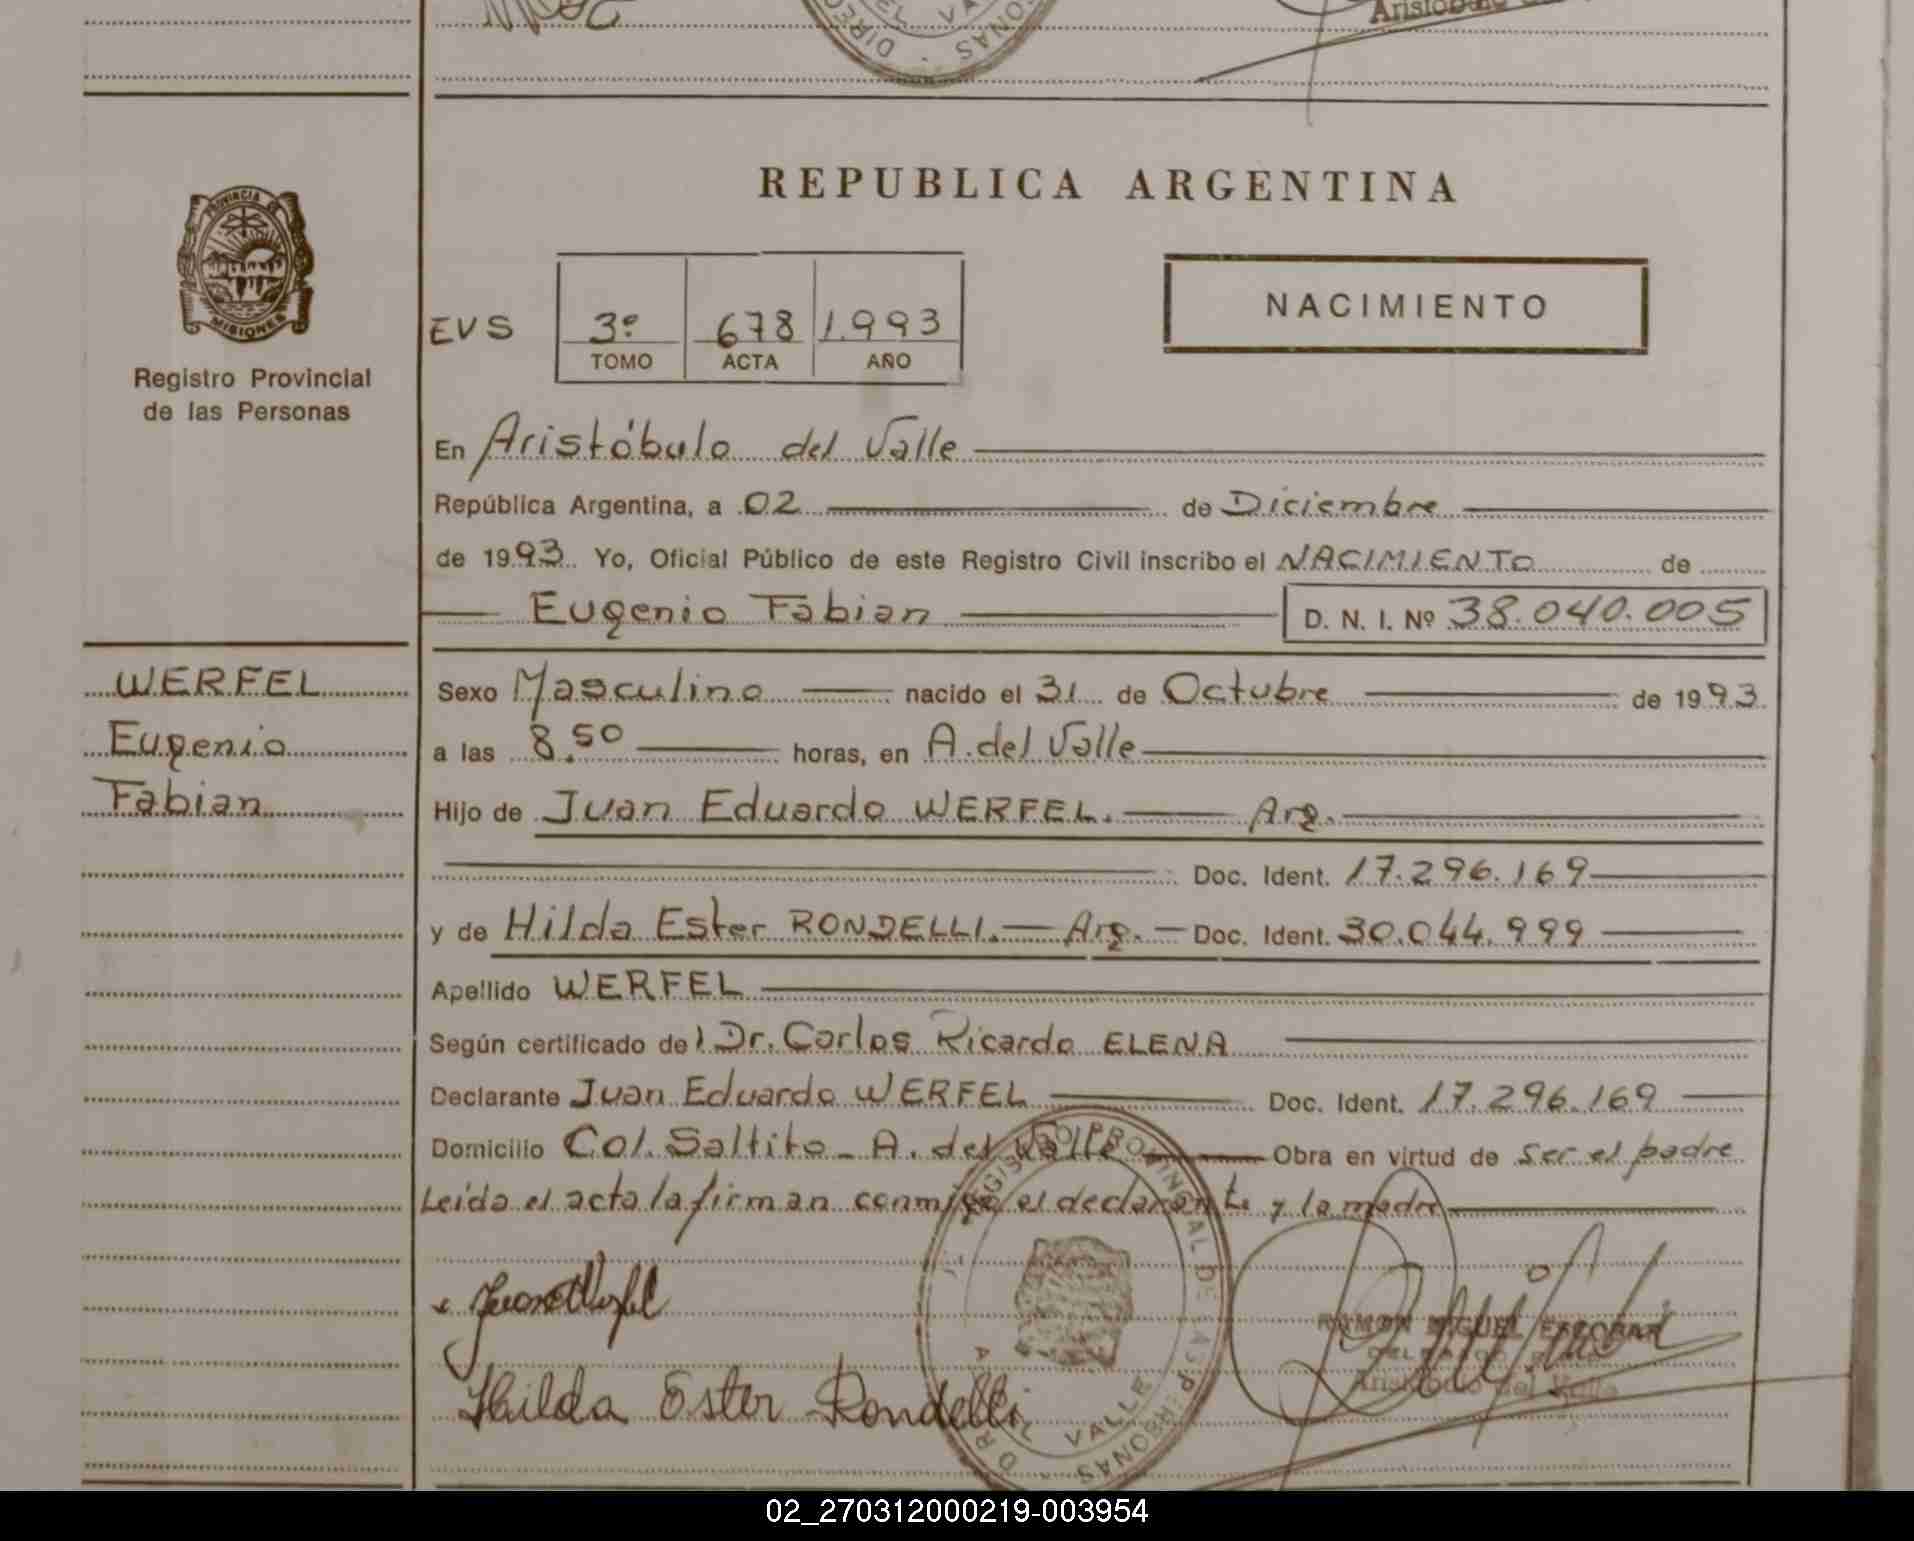 REPUBLICA ARGENTINA
PROVINCIA DE
MISIONES
Registro Provincial
de las Personas
EVS 3º 678 1.993
TOMO ACTA AÑO
NACIMIENTO
En Aristóbulo del Valle
República Argentina, a 02 de Diciembre
de 1993. Yo, Oficial Público de este Registro Civil inscribo el NACIMIENTO de
Eugenio Fabian D. N. I. Nº 38.040.005
WERFEL
Eugenio
Fabian
Sexo Masculino nacido el 31 de Octubre de 1993
a las 8.50 horas, en A. del Valle
Hijo de Juan Eduardo WERFEL. Arg.
Doc. Ident. 17.296.169
y de Hilda Ester RONDELLI. Arg. Doc. Ident. 30.044.999
Apellido WERFEL
Según certificado del Dr. Carlos Ricardo ELENA
Declarante Juan Eduardo WERFEL Doc. Ident. 17.296.169
Domicilio Col. Saltito - A. del Valle Obra en virtud de ser el padre
Leída el acta la firman conmigo el declarante y la madre
Hilda Ester Rondelli
REGISTRO PROVINCIAL DE LAS PERSONAS
VALLE
RAMON MIGUEL ESCOBAR
Aristóbulo del Valle
02_270312000219-003954